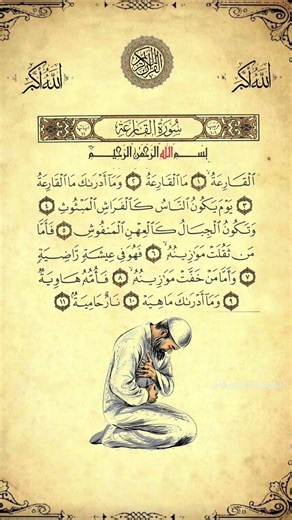 الله أكبر
القرآن الكريم
الله أكبر
سُورَةُ القَارِعَة
بِسْمِ اللَّهِ الرَّحْمَٰنِ الرَّحِيمِ
الْقَارِعَةُ ١ مَا الْقَارِعَةُ ٢ وَمَا أَدْرَىٰكَ مَا الْقَارِعَةُ
٣ يَوْمَ يَكُونُ النَّاسُ كَالْفَرَاشِ الْمَبْثُوثِ ٤
وَتَكُونُ الْجِبَالُ كَالْعِهْنِ الْمَنفُوشِ ٥ فَأَمَّا
مَن ثَقُلَتْ مَوَٰزِينُهُ ٦ فَهُوَ فِي عِيشَةٍ رَّاضِيَةٍ
٧ وَأَمَّا مَنْ خَفَّتْ مَوَٰزِينُهُ ٨ فَأُمُّهُ هَاوِيَةٌ
٩ وَمَا أَدْرَىٰكَ مَا هِيَهْ ١٠ نَارٌ حَامِيَةٌ ١١